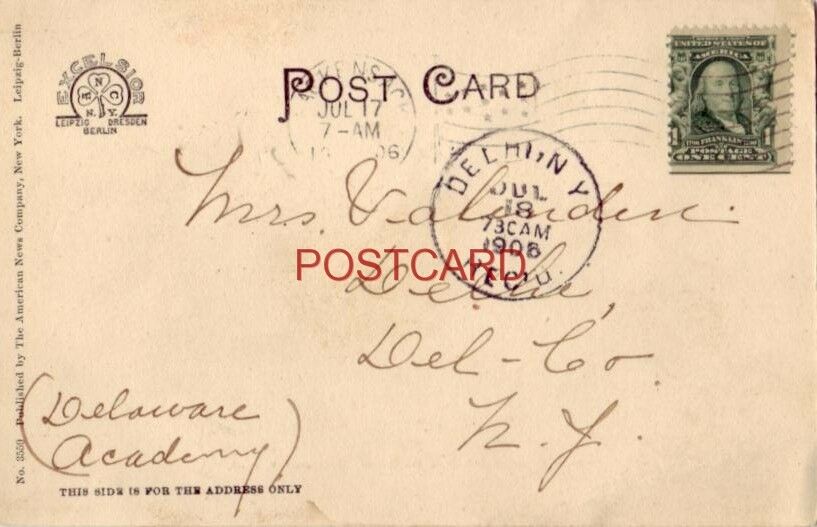 No. 3550 Published by The American News Company, New York. Leipzig-Berlin
EXCELSIOR
A N C
N. Y.
LEIPZIG DRESDEN
BERLIN
POST CARD
JUL 17
7-AM
06
UNITED STATES OF
AMERICA
FRANKLIN
1
POSTAGE
ONE CENT
DELHI, N Y
JUL
18
730AM
1906
REC'D.
Mrs.
Delhi,
Del-Co.
N. Y.
POSTCARD
(Delaware
Academy)
THIS SIDE IS FOR THE ADDRESS ONLY